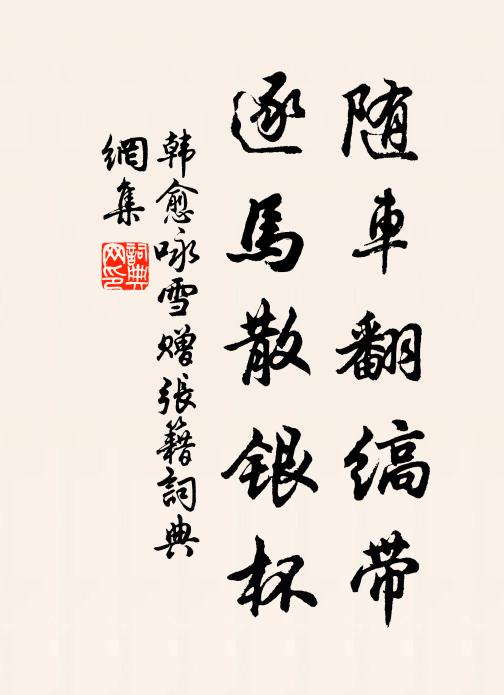 随車翻縞带
逐馬散銀杯
韩愈咏雪赠張籍詞典
網集
詞典网印